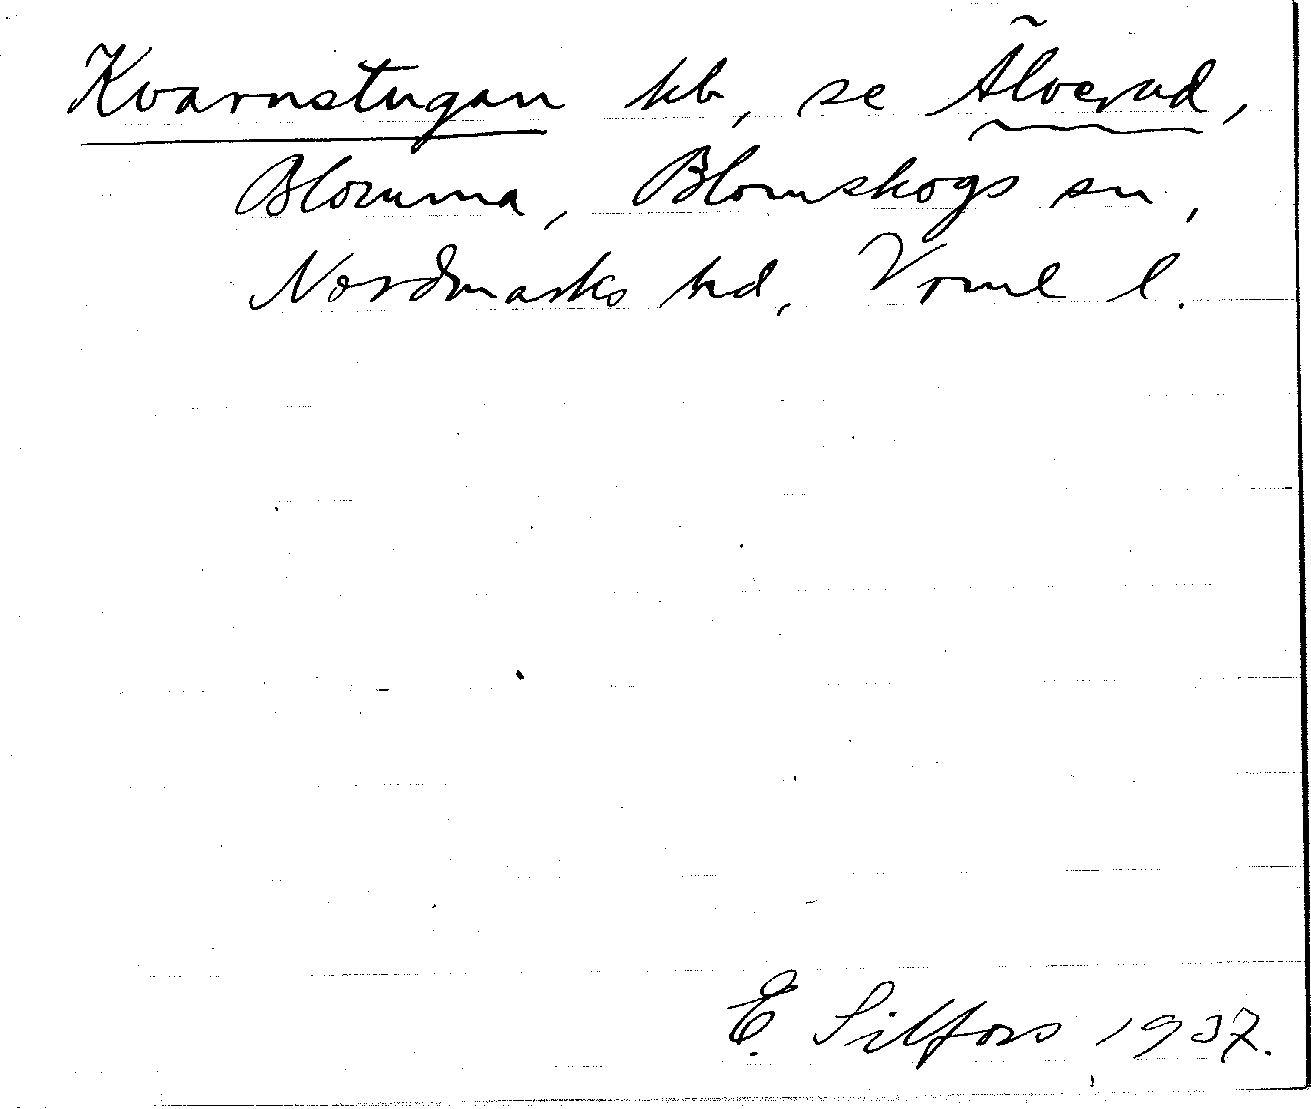 Kvarnstugan hb, se Älverud,
Blomma, Blomskogs sn,
Nordmarks hd, Vrml l.
E. Silfors 1937.